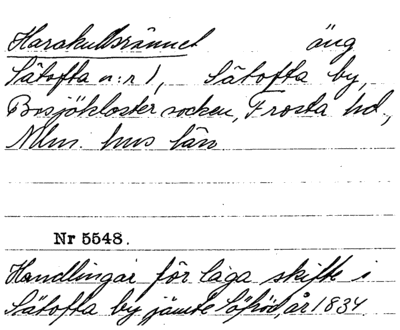 Harakullsrännet äng
Sätofta n:r 1, Sätofta by,
Bosjökloster socken, Frosta hd.,
Mlm. hus län
Nr 5548.
Handlingar för laga skifte i
Sätofta by jämte år 1834